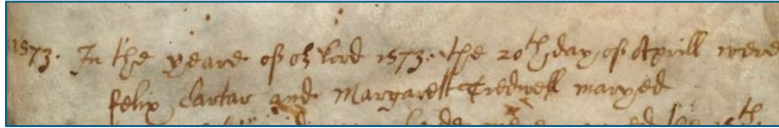 1573. In the yeare of oʳ lord 1573. the 20th day of Aprill were
Felix Cartar and Margarett Tredwell maryed